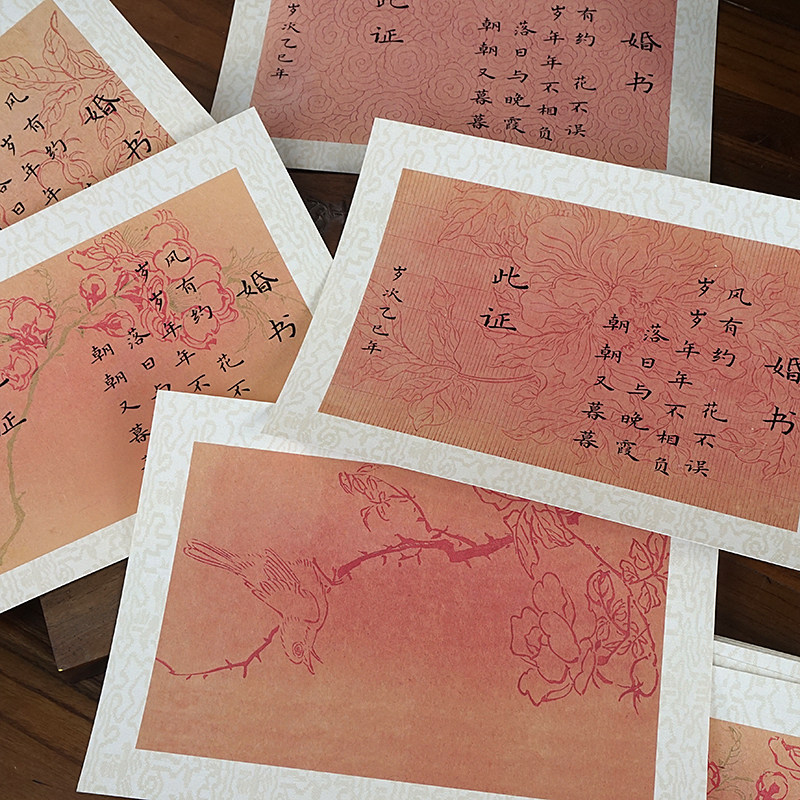 婚书
风有约
岁年年
日
婚书
有约 花不误
岁年年不相负
落日与晚霞
朝朝又暮暮
此证
岁次乙巳年
婚书
风有约 花不
岁岁年年不
落日与
朝朝又暮
证
婚书
风有约 花不误
岁岁年年不相负
落日与晚霞
朝朝又暮暮
此证
岁次乙巳年